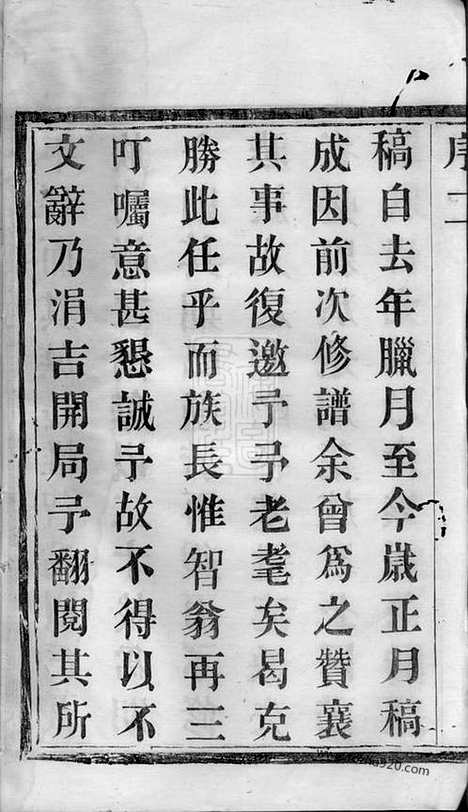 序二
稿自去年臘月至今歲正月稿
成因前次修譜余曾爲之贊襄
其事故復邀予予老耄矣曷克
勝此任乎而族長惟智翁再三
叮囑意甚懇誠予故不得以不
文辭乃涓吉開局予翻閱其所